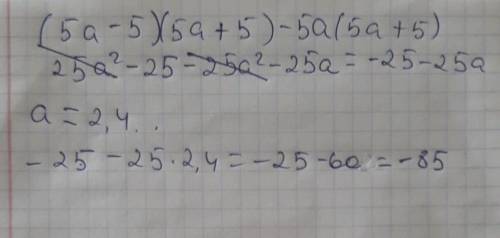 (5a-5)(5a+5)-5a(5a+5)
25a²-25-25a²-25a=-25-25a
a=2,4..
-25-25·2,4=-25-60=-85